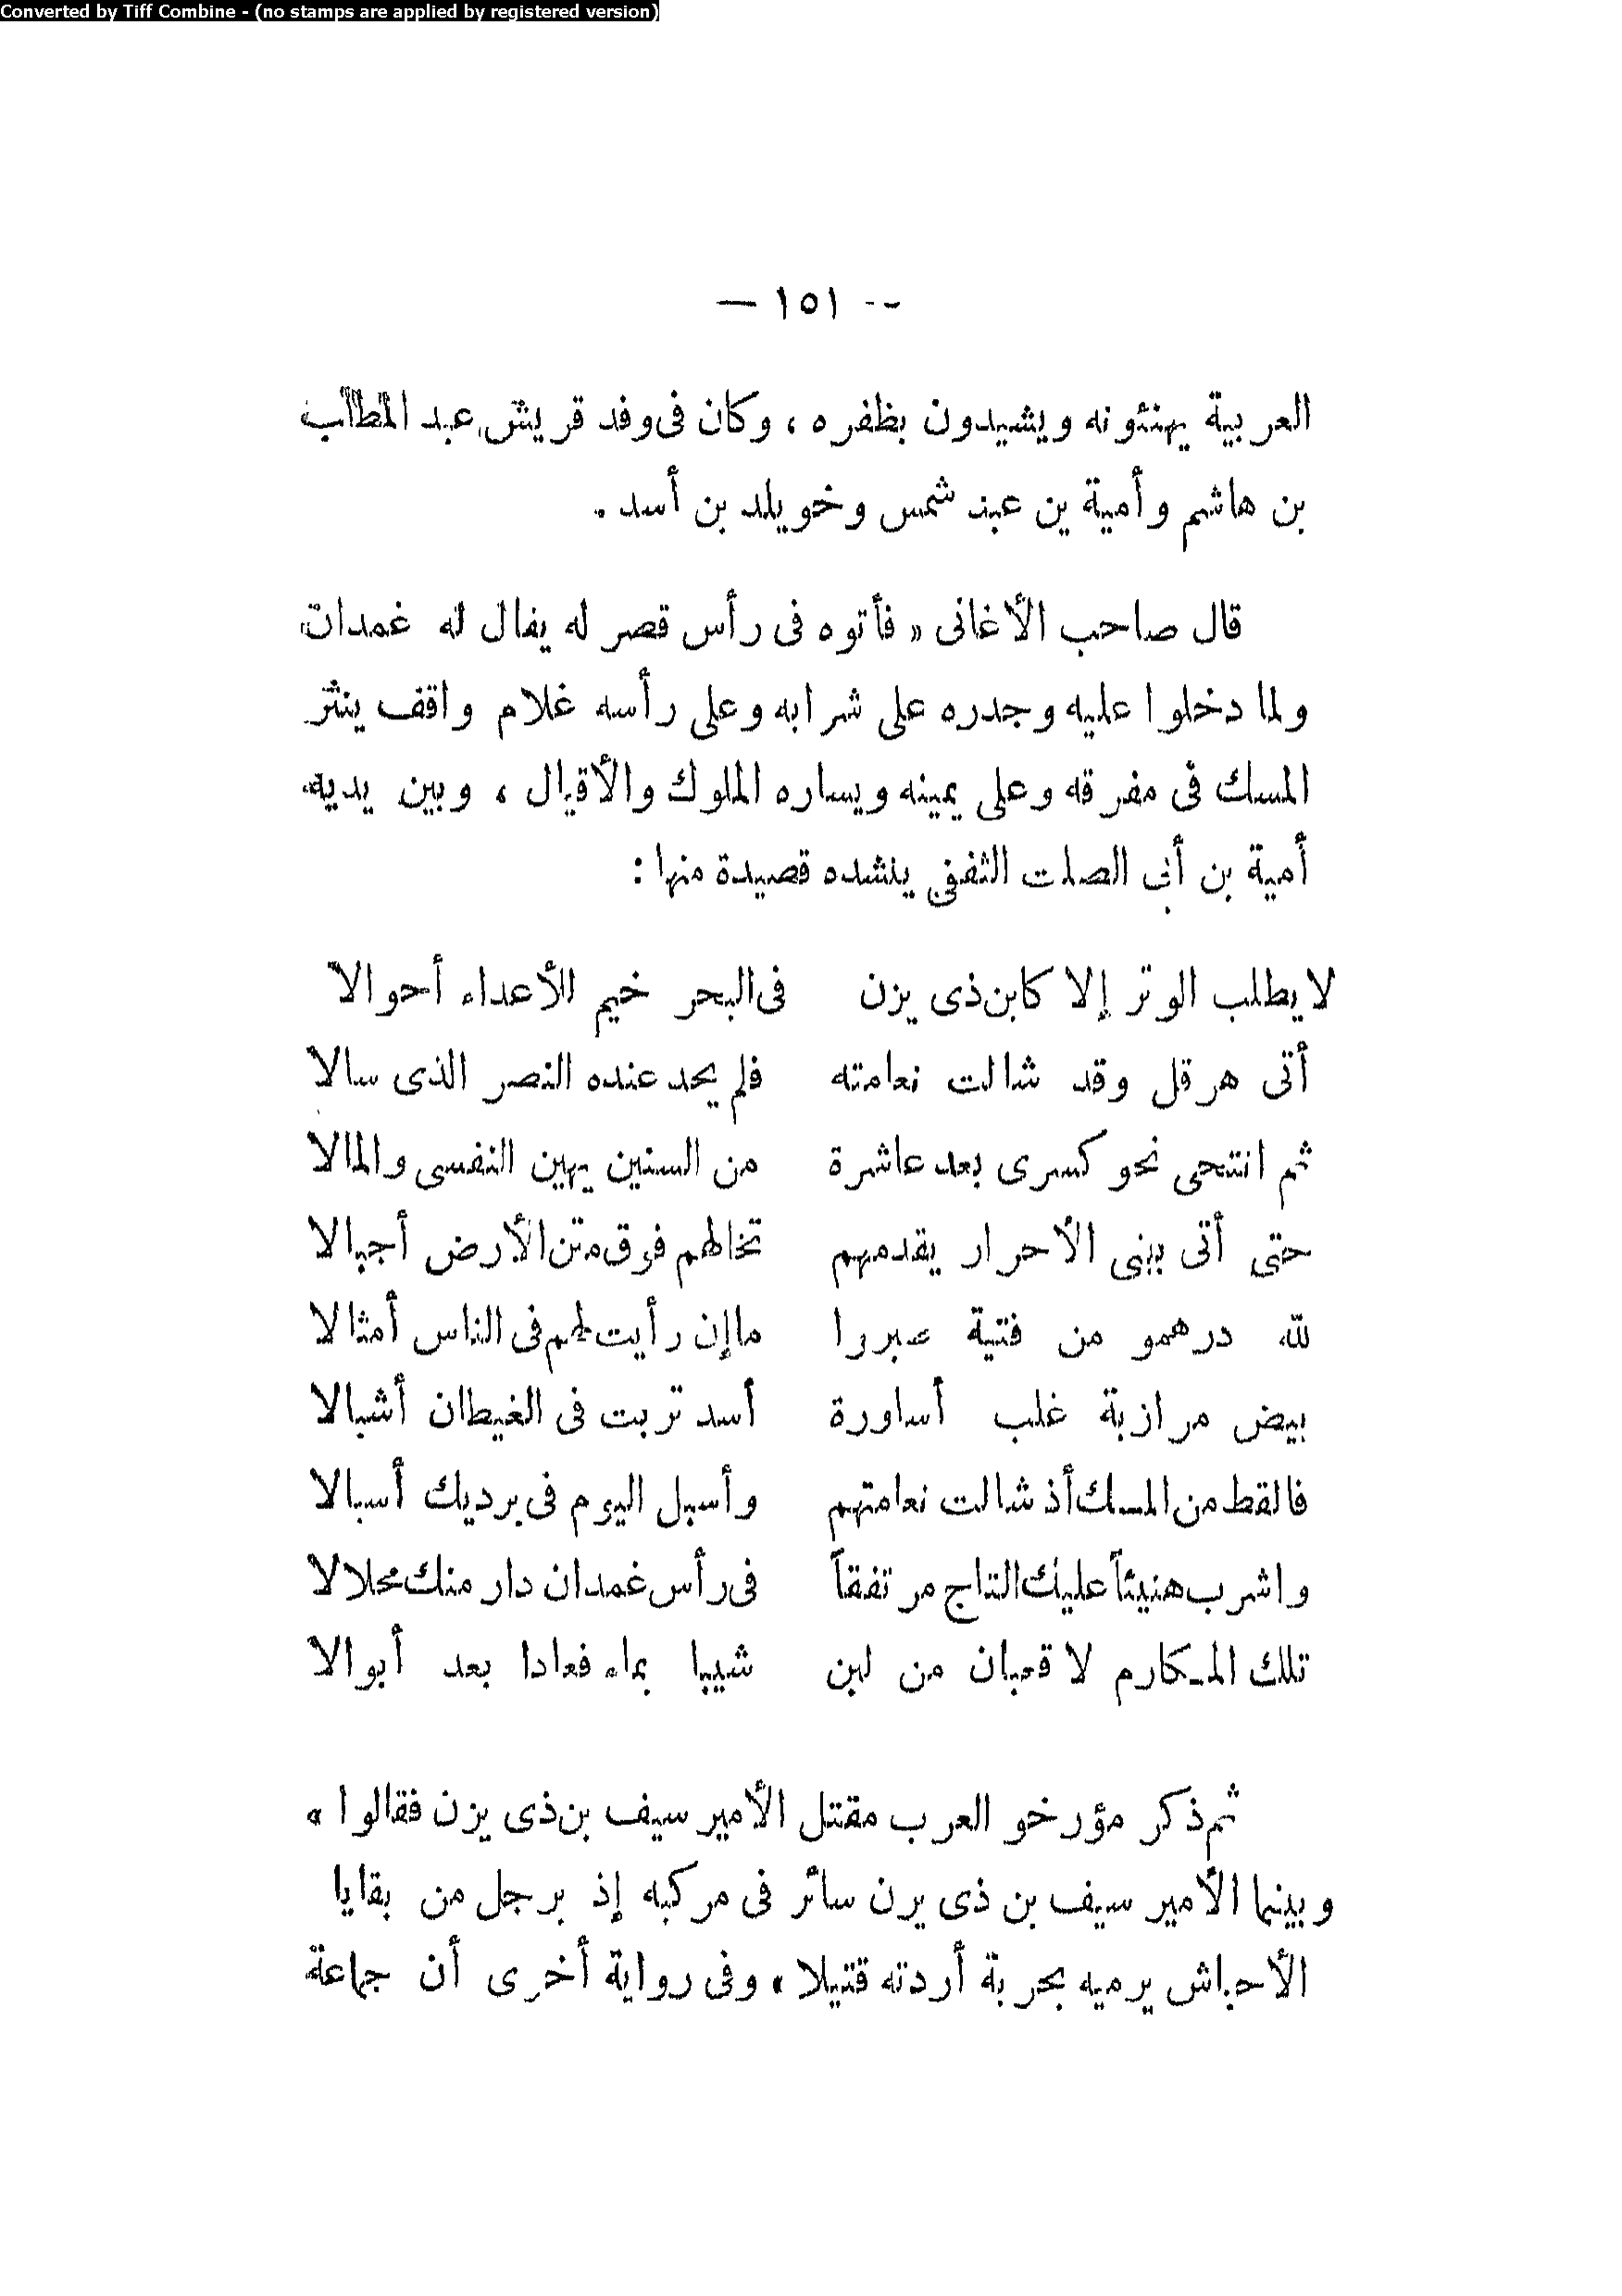 Converted by Tiff Combine - (no stamps are applied by registered version)
— ١٥١ —
العربية يهنئونه ويشيدون بظفره ، وكان فى وفد قريش عبد المطلب
بن هاشم وأمية بن عبد شمس وخويلد بن أسد .
قال صاحب الأغانى « فأتوه فى رأس قصر له يقال له غمدان
ولما دخلوا عليه وجدره على شرابه وعلى رأسه غلام واقف ينثر
المسك فى مفرقه وعلى يمينه ويساره الملوك والأقيال ، وبين يديه
أمية بن أبى الصلت الثقفى ينشده قصيدة منها :
لا يطلب الوتر إلا كابن ذى يزن فى البحر خيم للأعداء أحوالا
أتى هرقل وقد شالت نعامته فلم يجد عنده النصر الذى سالا
ثم انتحى نحو كسرى بعد عاشرة من السنين يهين النفسى والمالا
حتى أتى ببنى الأحرار يقدمهم تخالهم فوق متن الأرض أجبالا
لله درهمو من فتية صبروا ما إن رأيت لهم فى الناس أمثالا
بيض مرازبة غلب أساورة أسد تربت فى الغيطان أشبالا
فالقط من المسك أذ شالت نعامتهم وأسبل اليوم فى برديك أسبالا
واشرب هنيئاً عليك التاج مرتفقاً فى رأس غمدان دار منك محلالا
تلك المكارم لا قعبان من لبن شيبا بماء فعادا بعد أبوالا
ثم ذكر مؤرخو العرب مقتل الأمير سيف بن ذى يزن فقالوا «
وبينما الأمير سيف بن ذى يرن سائر فى مركبه إذ برجل من بقايا
الأحباش يرميه بحربة أردته قتيلا » وفى رواية أخرى أن جماعة